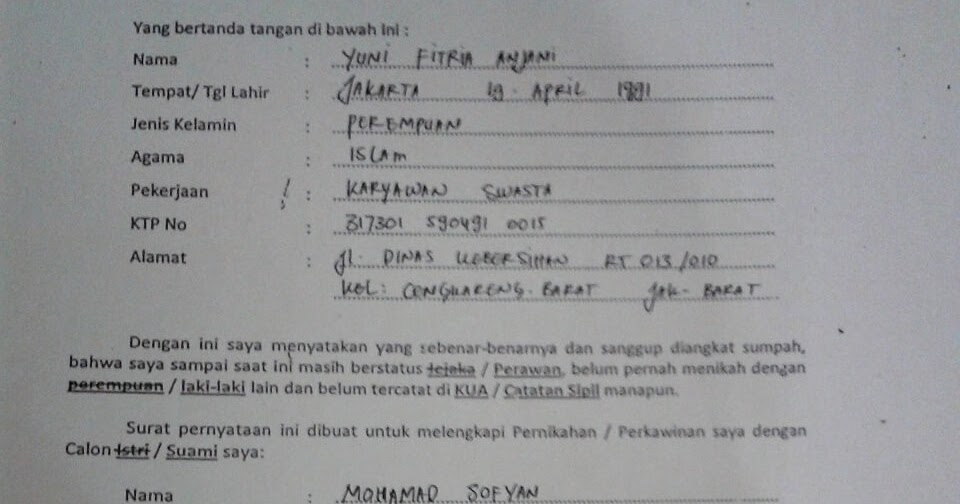 Yang bertanda tangan di bawah ini :
Nama : YUNI FITRIA ANJANI
Tempat/ Tgl Lahir : JAKARTA 19 - APRIL 1991
Jenis Kelamin : PEREMPUAN
Agama : ISLAM
Pekerjaan : KARYAWAN SWASTA
KTP No : 317301 590491 0015
Alamat : Jl. DINAS KEBERSIHAN RT 013/010
KEL: CENGKARENG - BARAT JAK - BARAT
Dengan ini saya menyatakan yang sebenar-benarnya dan sanggup diangkat sumpah,
bahwa saya sampai saat ini masih berstatus Jejaka / Perawan, belum pernah menikah dengan
perempuan / laki-laki lain dan belum tercatat di KUA / Catatan Sipil manapun.
Surat pernyataan ini dibuat untuk melengkapi Pernikahan / Perkawinan saya dengan
Calon Istri / Suami saya:
Nama : MOHAMAD SOFYAN